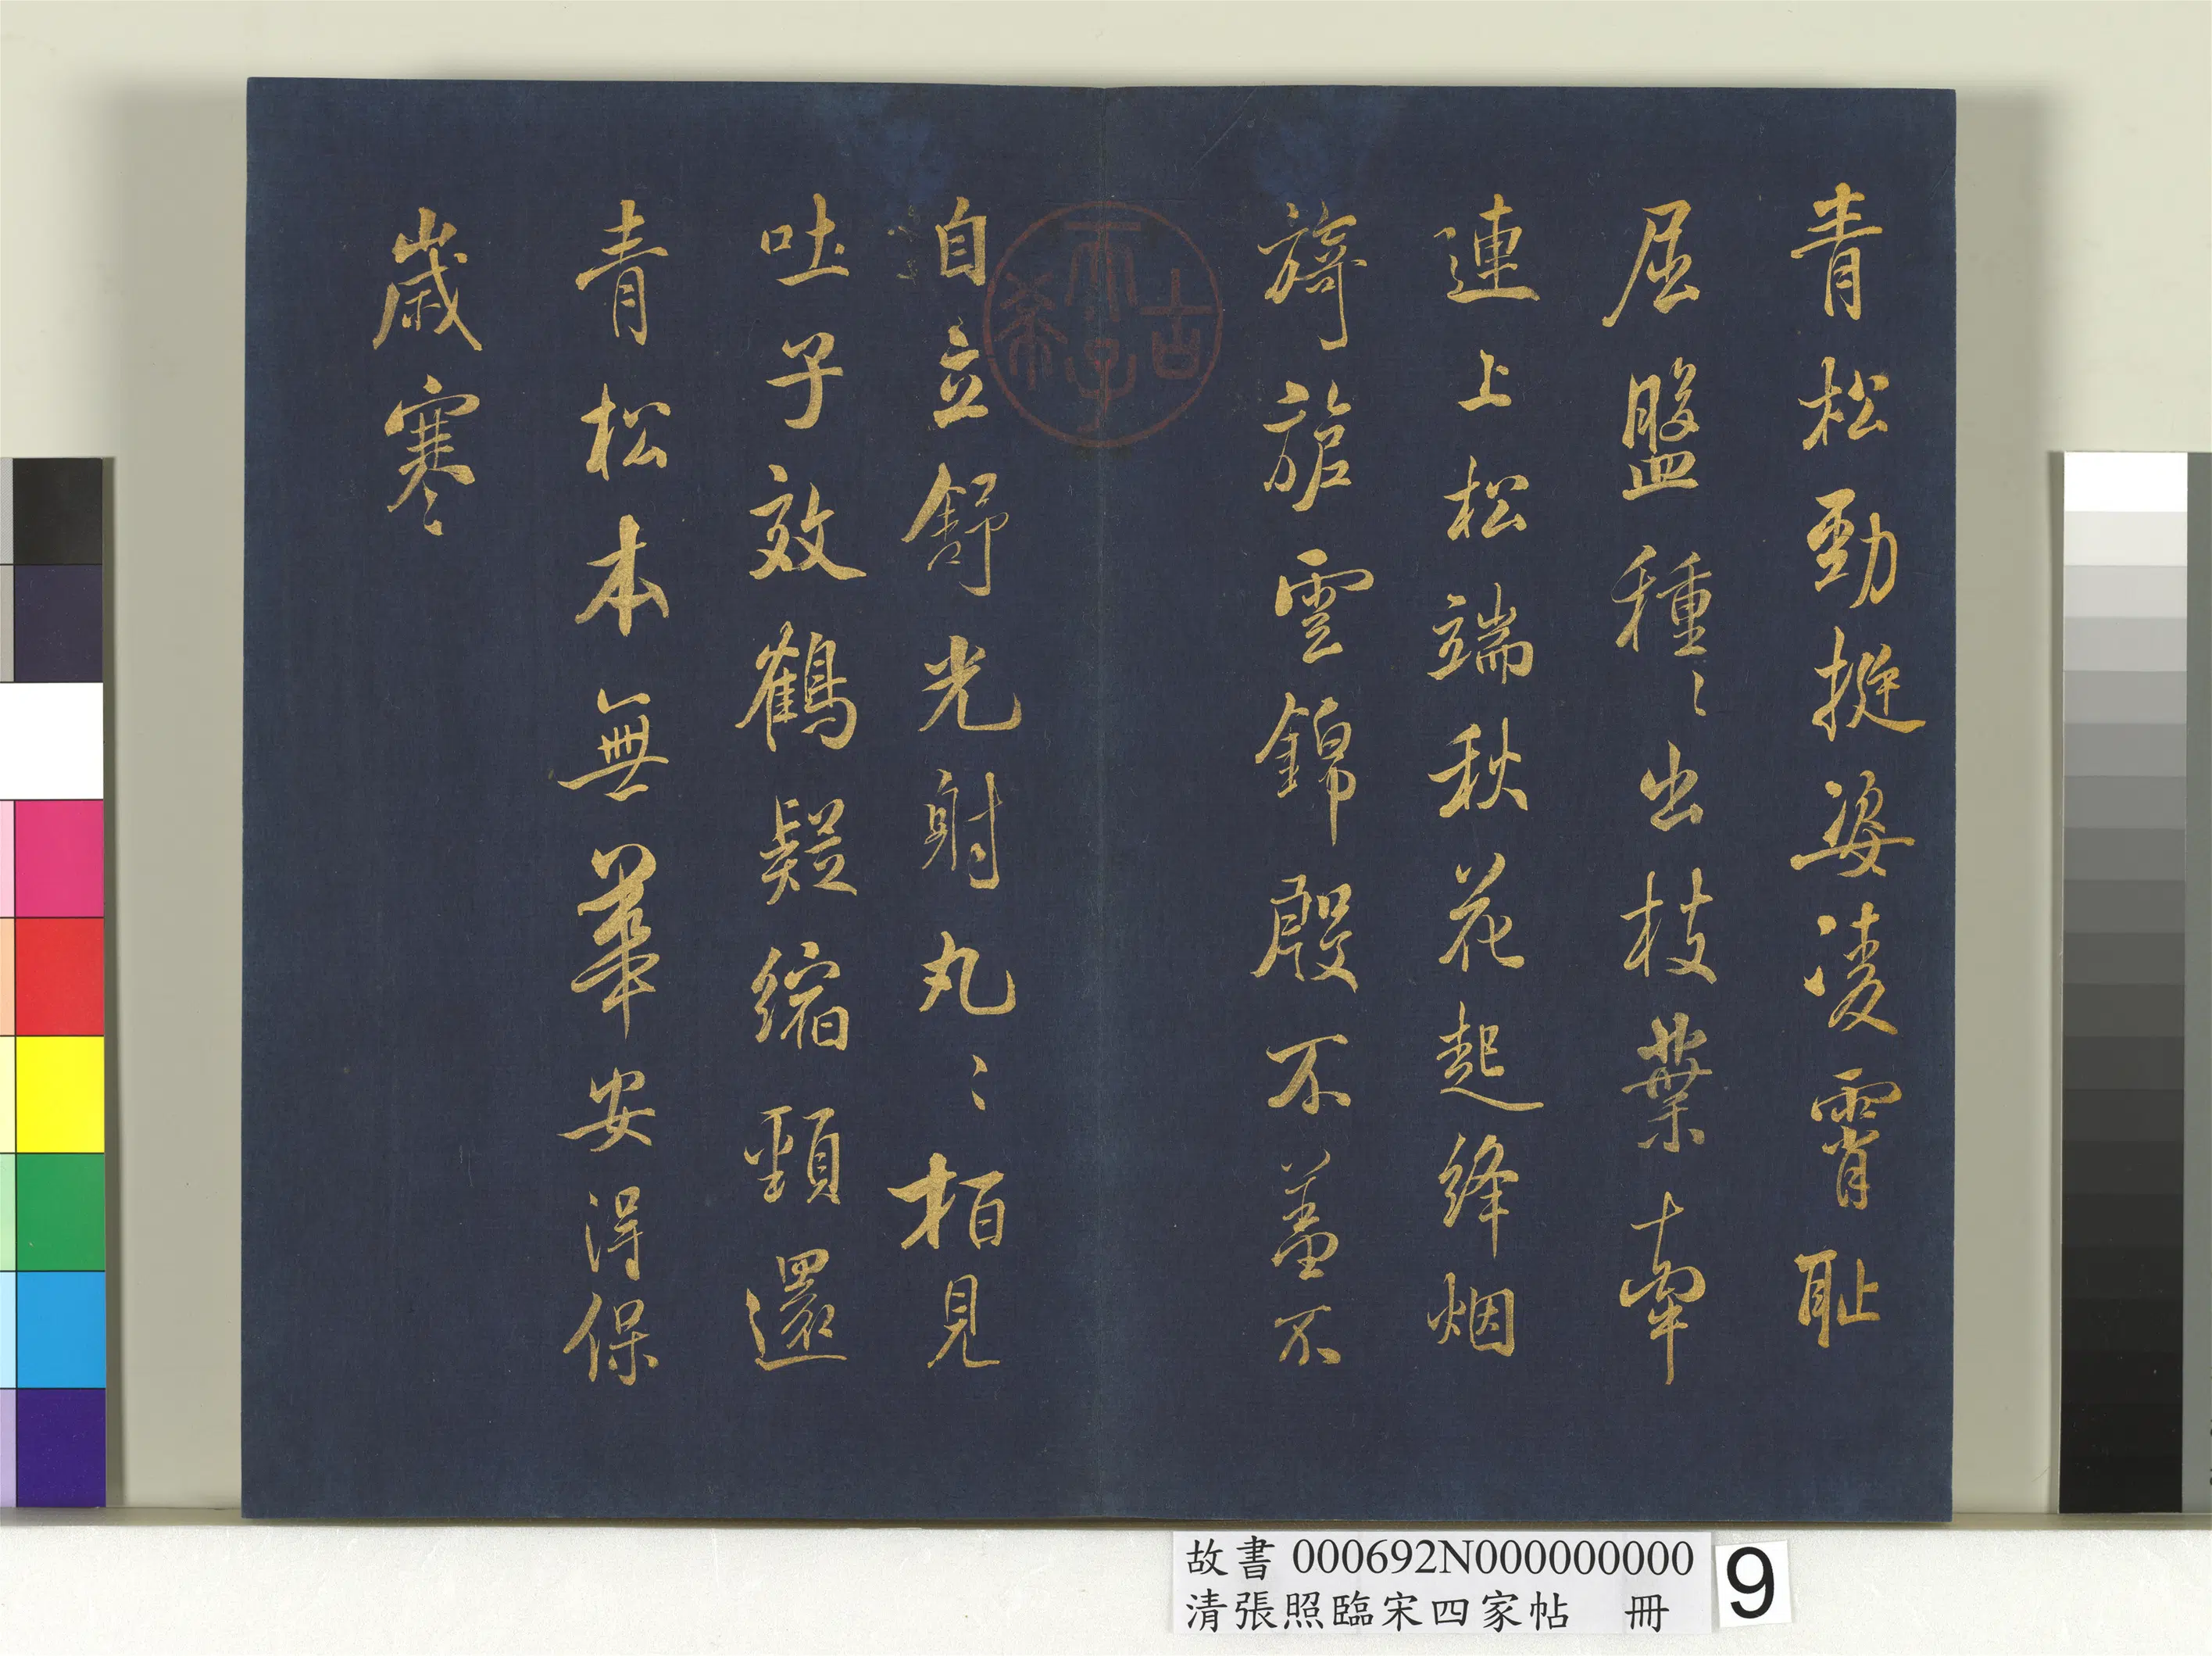 青松勁挺姿凌霄恥
屈盤種〻出枝葉牽
連上松端秋花起絳烟
旖旎雲錦殷不羞不
自立舒光射丸〻栢見
吐子效鶴疑縮頸還
青松本無華安得保
歲寒
古希天子
故書 000692N000000000
清張照臨宋四家帖 冊
9